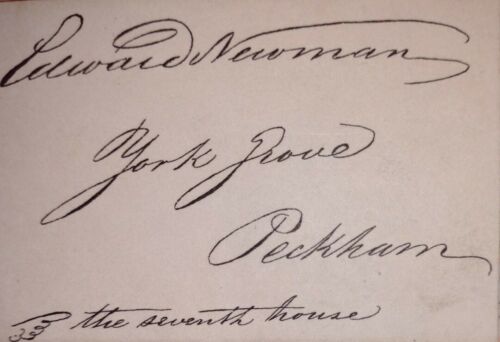 Edward Newman
York Grove
Peckham
the seventh house